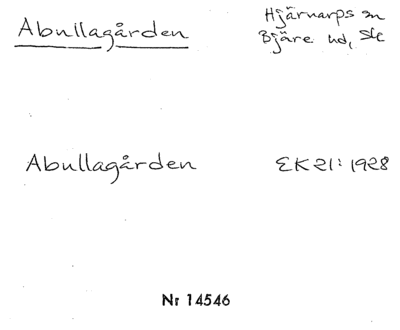 Abullagården
Hjärnarps sn
Bjäre hd, Sk
Abullagården
EK21: 1928
Nr 14546